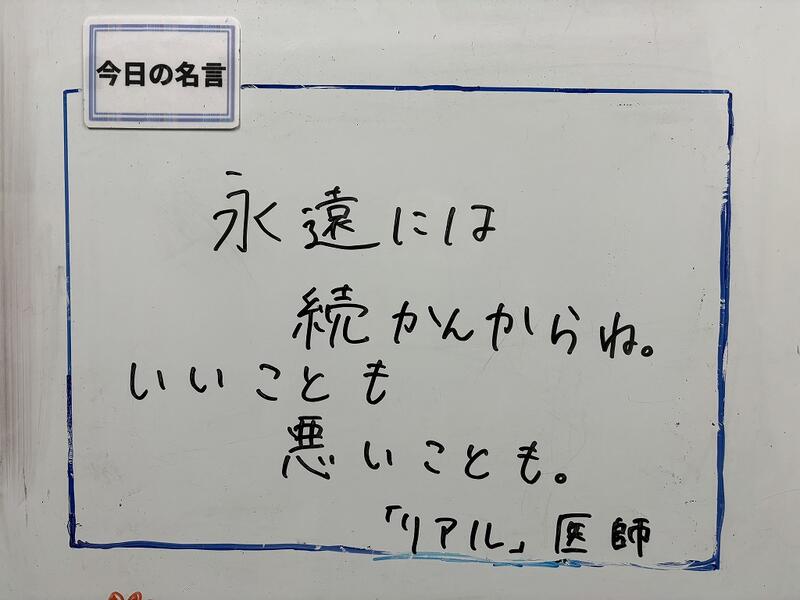 今日の名言
永遠には
続かんからね。
いいことも
悪いことも。
「リアル」医師